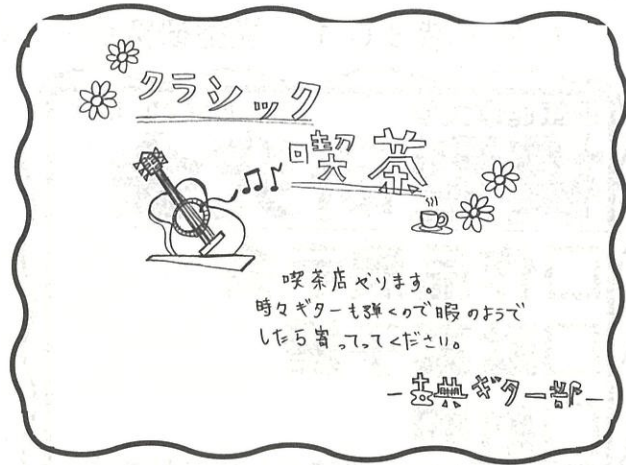 クラシック
喫茶
喫茶店やります。
時々ギターも弾くので暇のようで
したら寄ってってください。
-古典ギター部-